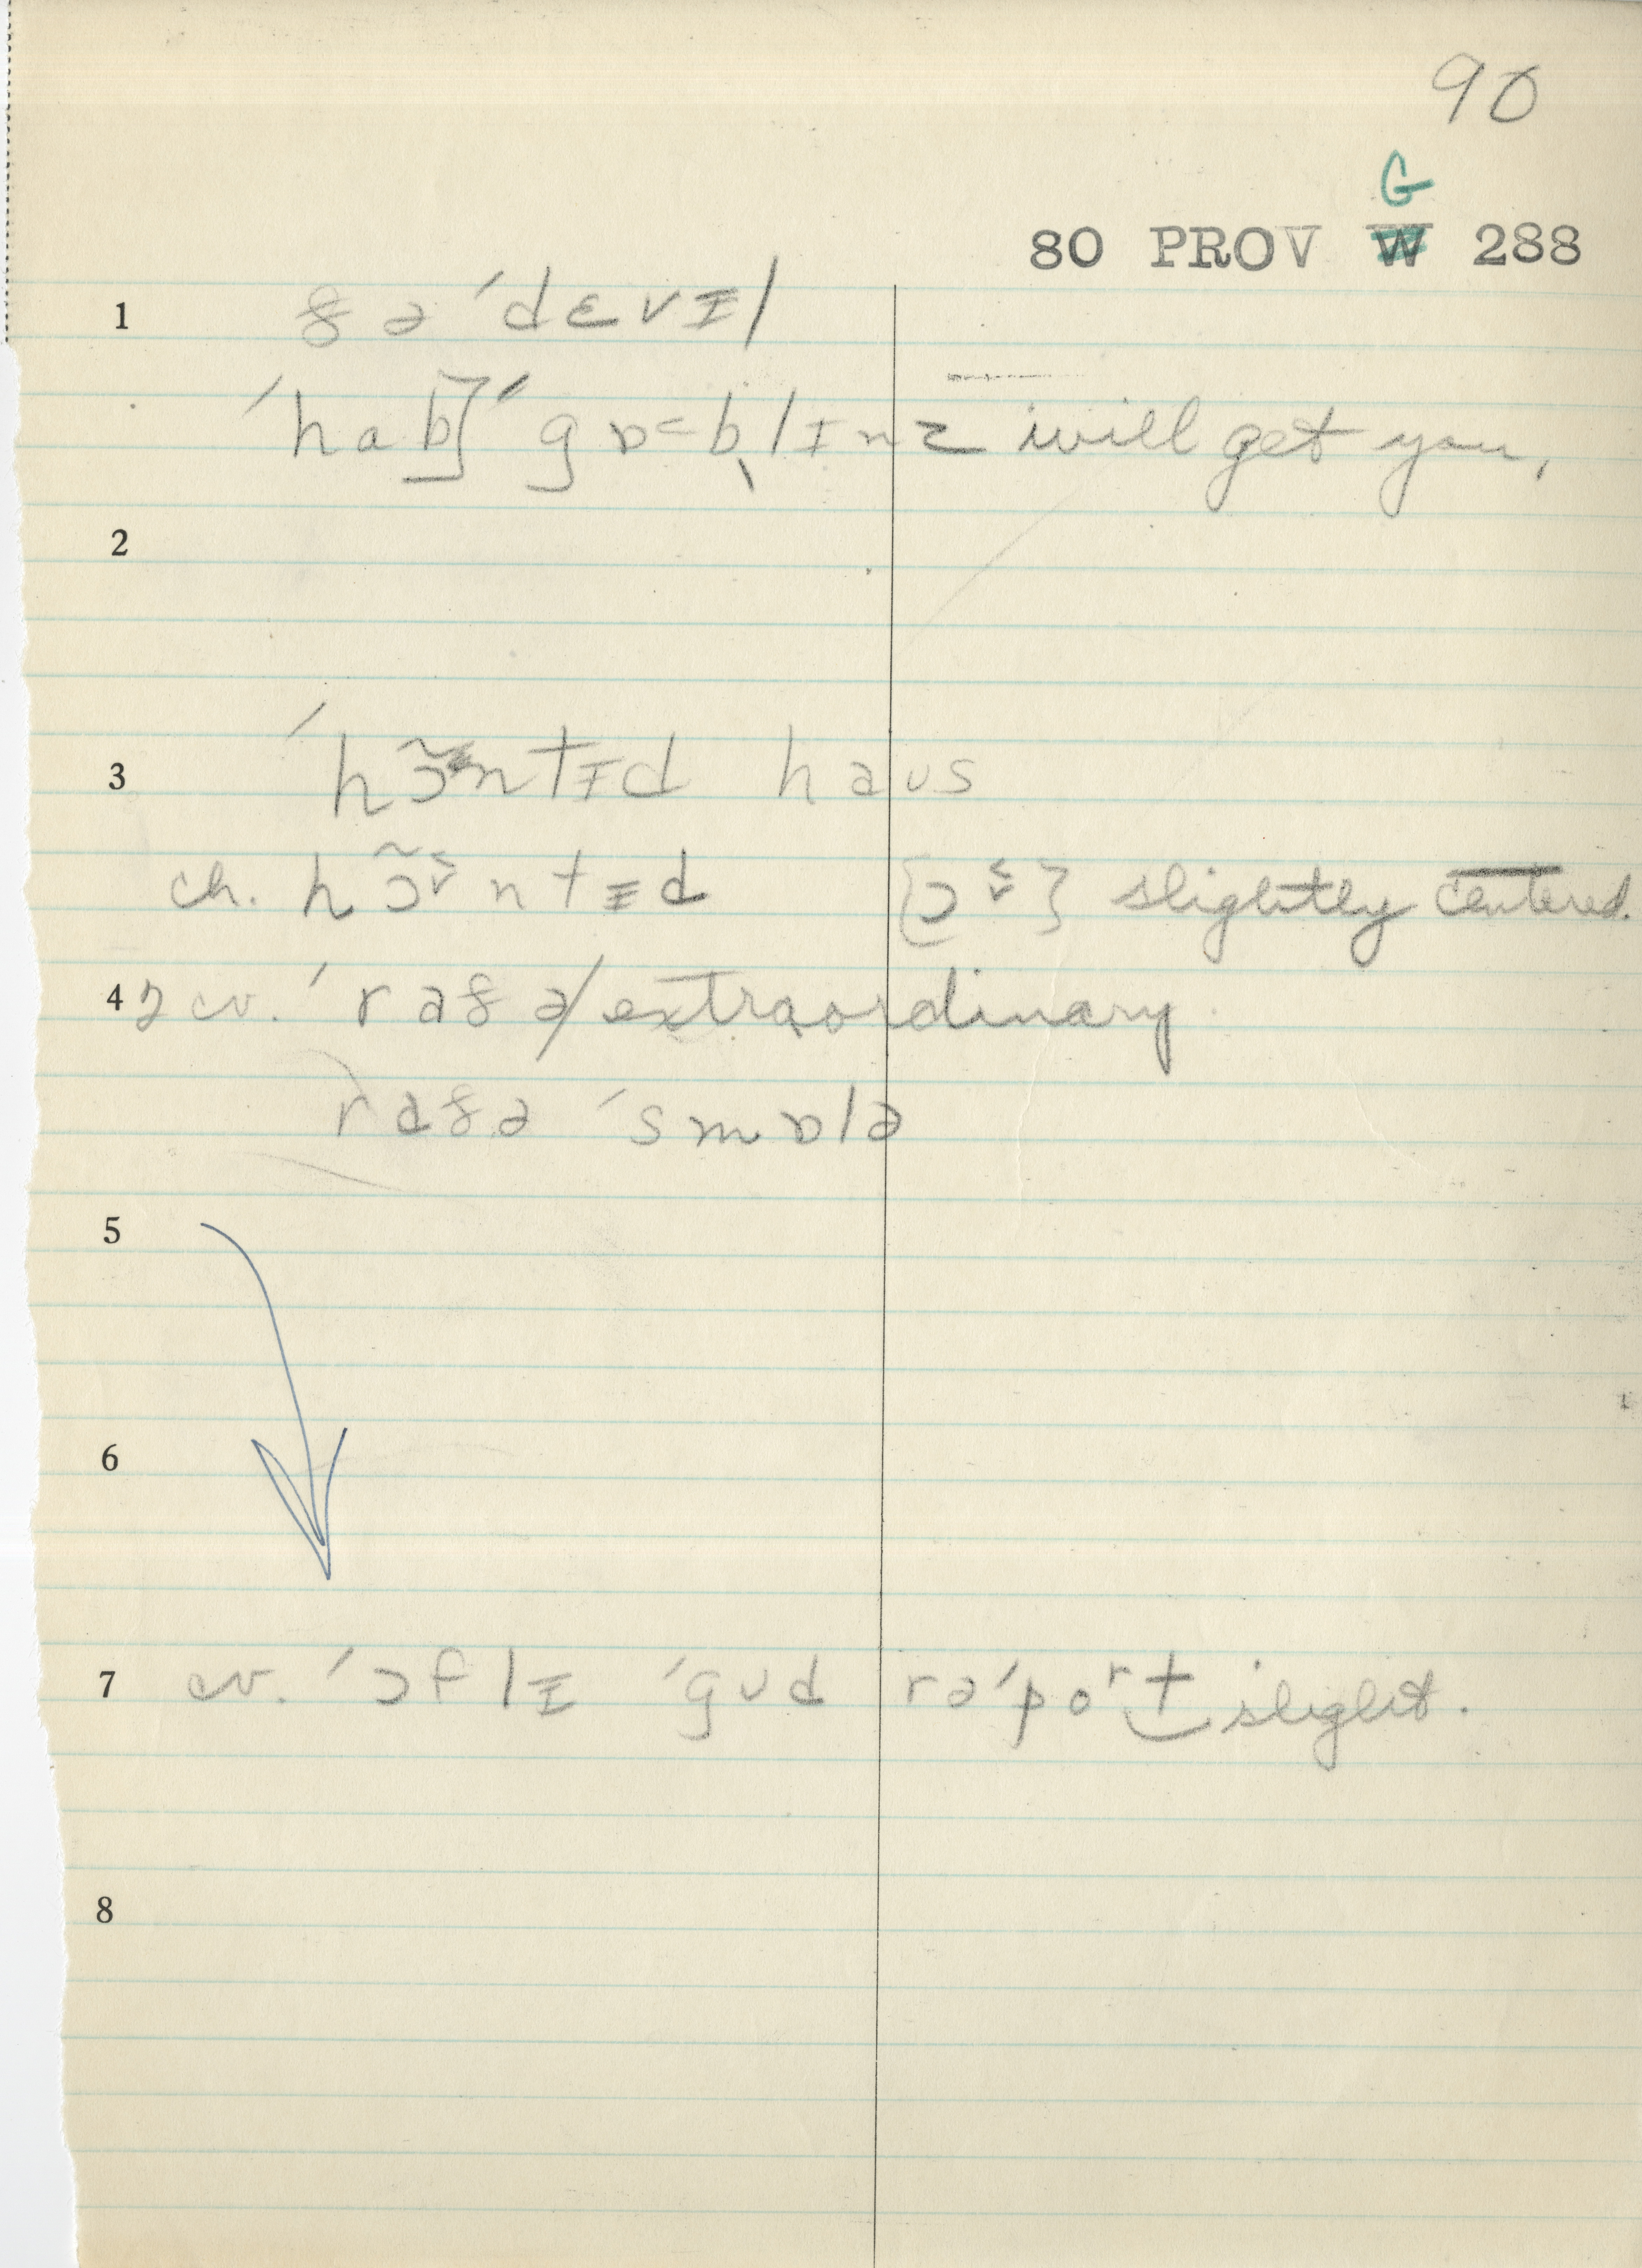 90
G
80 PROV W 288
1 ðə ˈdɛvɪl
ˈhab] ˈgɒ˂b̥lɪnz will get you,
2
3 ˈhɔ̃ntɪd haus
ch. hɔ̃ntɪd [ɔ] slightly centered.
4 cv. ˈraðə/extraordinary
raðə ˈsmɒlə
5
6
7 cv. ˈɔflɪ ˈgud rəˈpoʳt slight.
8